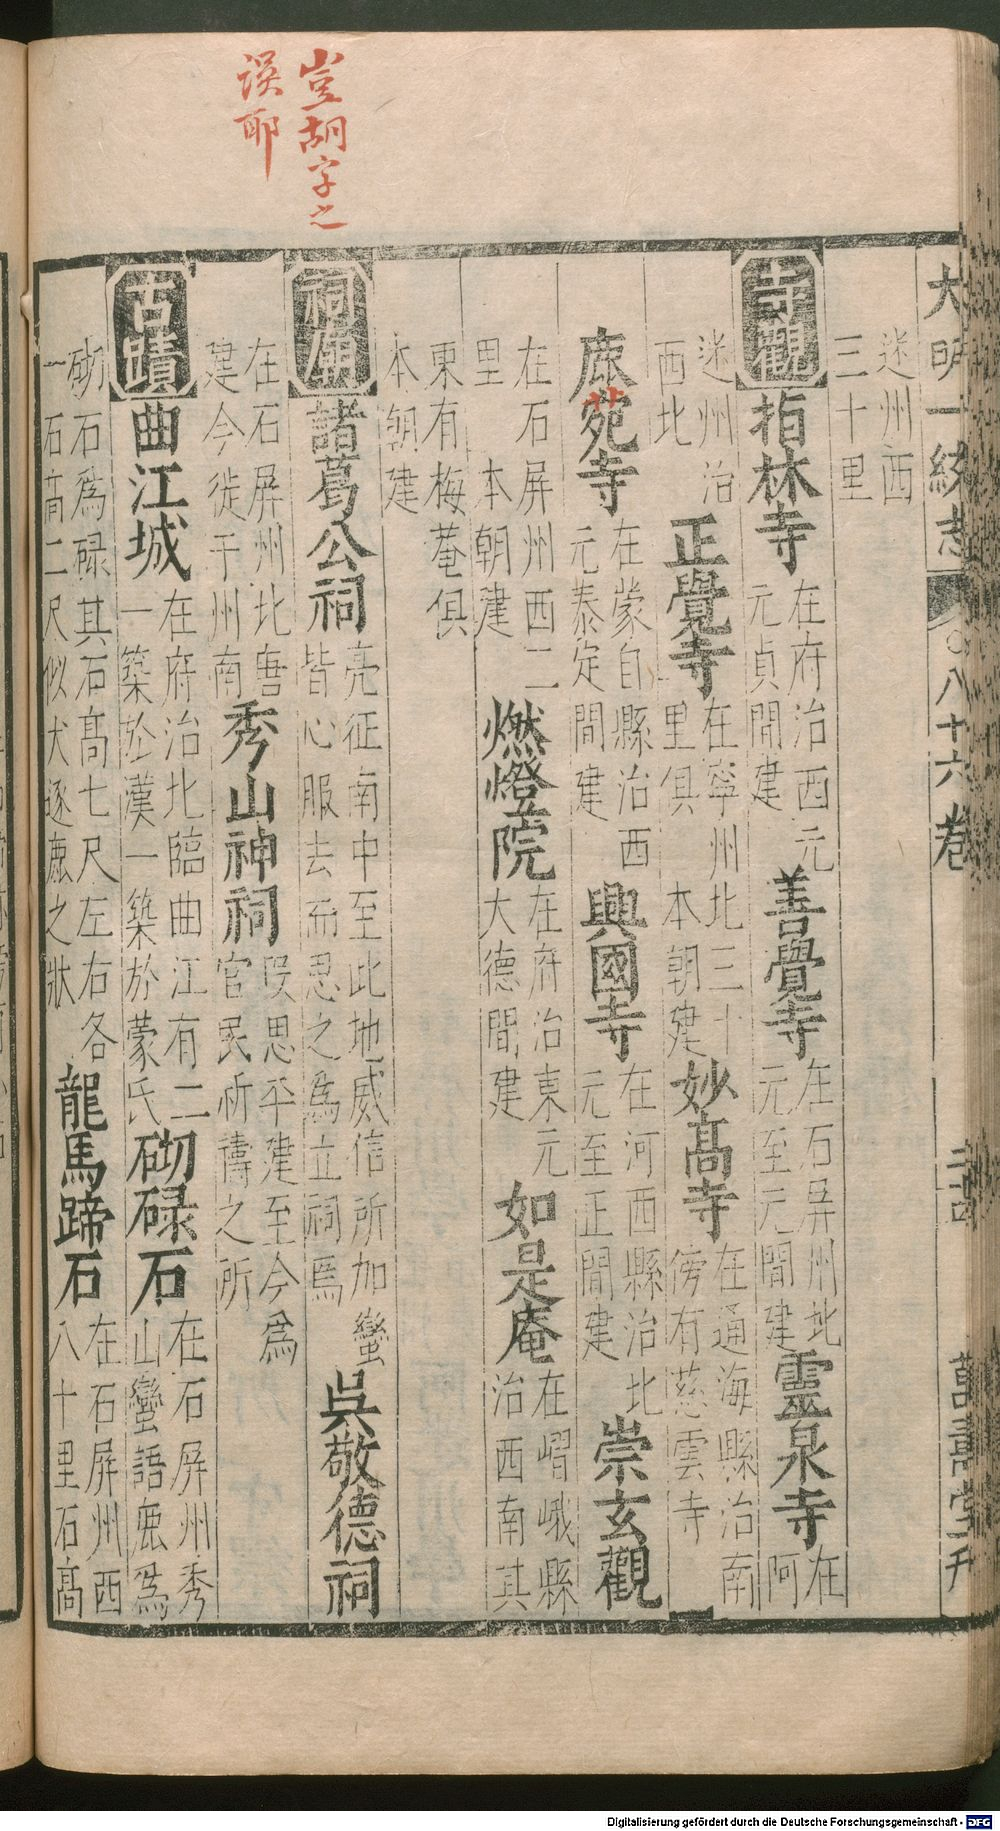 豈胡字之
誤耶
大明一統志 八十六卷 萬壽堂刊
迷州西
三十里
寺觀 指林寺 在府治西元
元貞間建 善覺寺 在石屏州北
元至元間建 靈泉寺 在阿
迷州治
西北 正覺寺 在寧州北三十
里俱本朝建 妙高寺 在通海縣治南
傍有慈雲寺
鹿苑寺 在蒙自縣治西
元泰定間建 興國寺 在河西縣治北
元至正間建 崇玄觀
在石屏州西二
里本朝建 燃燈院 在府治東元
大德間建 如是庵 在嶍峨縣
治西南其
東有梅菴俱
本朝建
祠廟 諸葛公祠 亮征南中至此地威信所加蠻
皆心服去而思之為立祠焉 吳敬德祠
在石屏州北唐
建今徙于州南 秀山神祠 段思平建至今為
官民祈禱之所
古蹟 曲江城 在府治北臨曲江有二
一築於漢一築於蒙氏 砌碌石 在石屏州秀
山蠻語鹿為
砌石為碌其石高七尺左右各
一石高二尺似犬逐鹿之狀 龍馬蹄石 在石屏州西
八十里石高
Digitalisierung gefördert durch die Deutsche Forschungsgemeinschaft - DFG